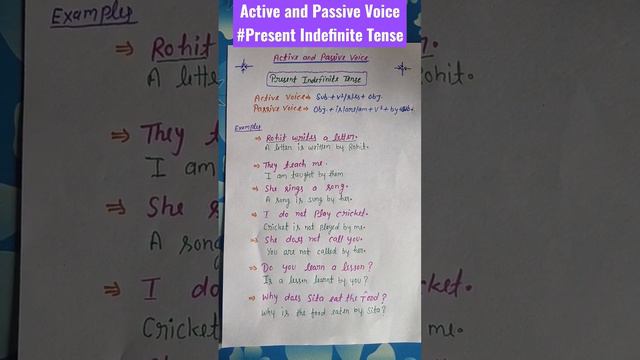 Active and Passive Voice
#Present Indefinite Tense
Active and Passive Voice
Present Indefinite Tense
Active Voice → Sub + V¹/s/es + Obj.
Passive Voice → Obj. + is/are/am + V³ + by + sub.
Examples
⇒ Rohit writes a letter.
A letter is written by Rohit.
⇒ They teach me.
I am taught by them
⇒ She sings a song.
A song is sung by her.
⇒ I do not play cricket.
Cricket is not played by me.
⇒ She does not call you.
You are not called by her.
⇒ Do you learn a lesson?
Is a lesson learnt by you?
⇒ Why does Sita eat the food?
Why is the food eaten by Sita?